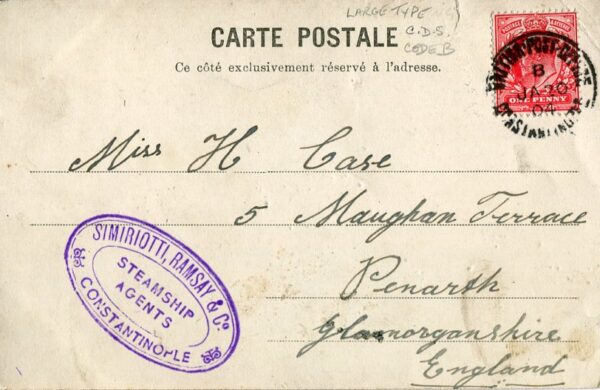 LARGE TYPE
C.D.S.
CODE B
CARTE POSTALE
Ce côté exclusivement réservé à l'adresse.
BRITISH·POST·OFFICE
B
JA 20
04
CONSTANTINOPLE
ONE PENNY
Miss H Case
5 Maughan Terrace
Penarth
Glamorganshire
England
SIMIRIOTTI, RAMSAY & Co
STEAMSHIP
AGENTS
CONSTANTINOPLE